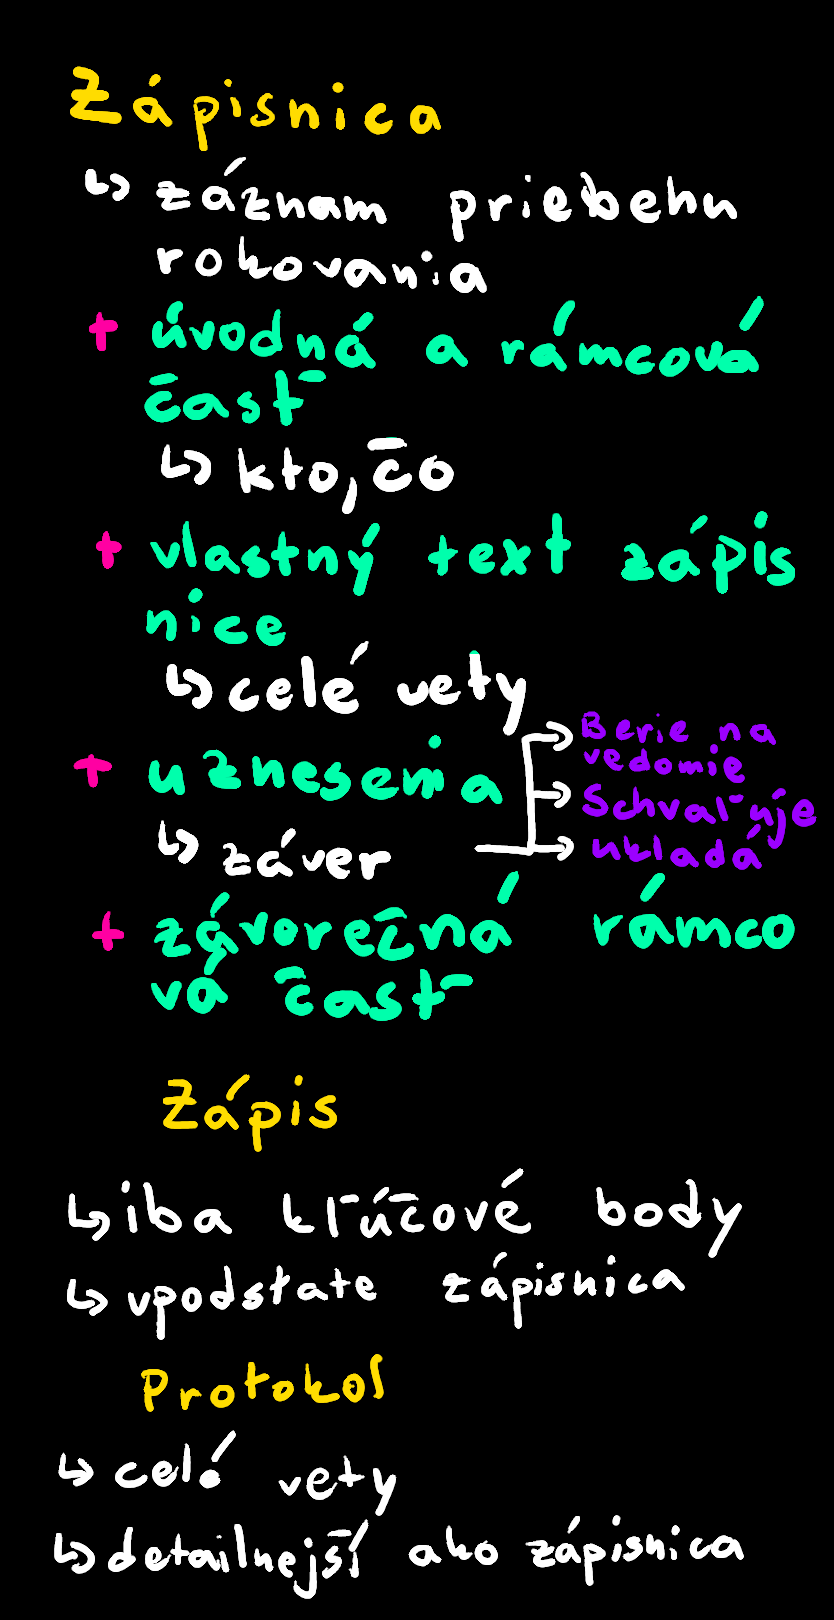 Zápisnica
↳ záznam priebehu
rokovania
+ úvodná a rámcová
časť
↳ kto, čo
+ vlastný text zápis
nice
↳ celé vety
+ uznesenia
→ Berie na
vedomie
→ Schvaľuje
↳ záver → ukladá
+ závorečná rámco
vá časť
Zápis
↳ iba kľúčové body
↳ vpodstate zápisnica
Protokol
↳ celé vety
↳ detailnejší ako zápisnica